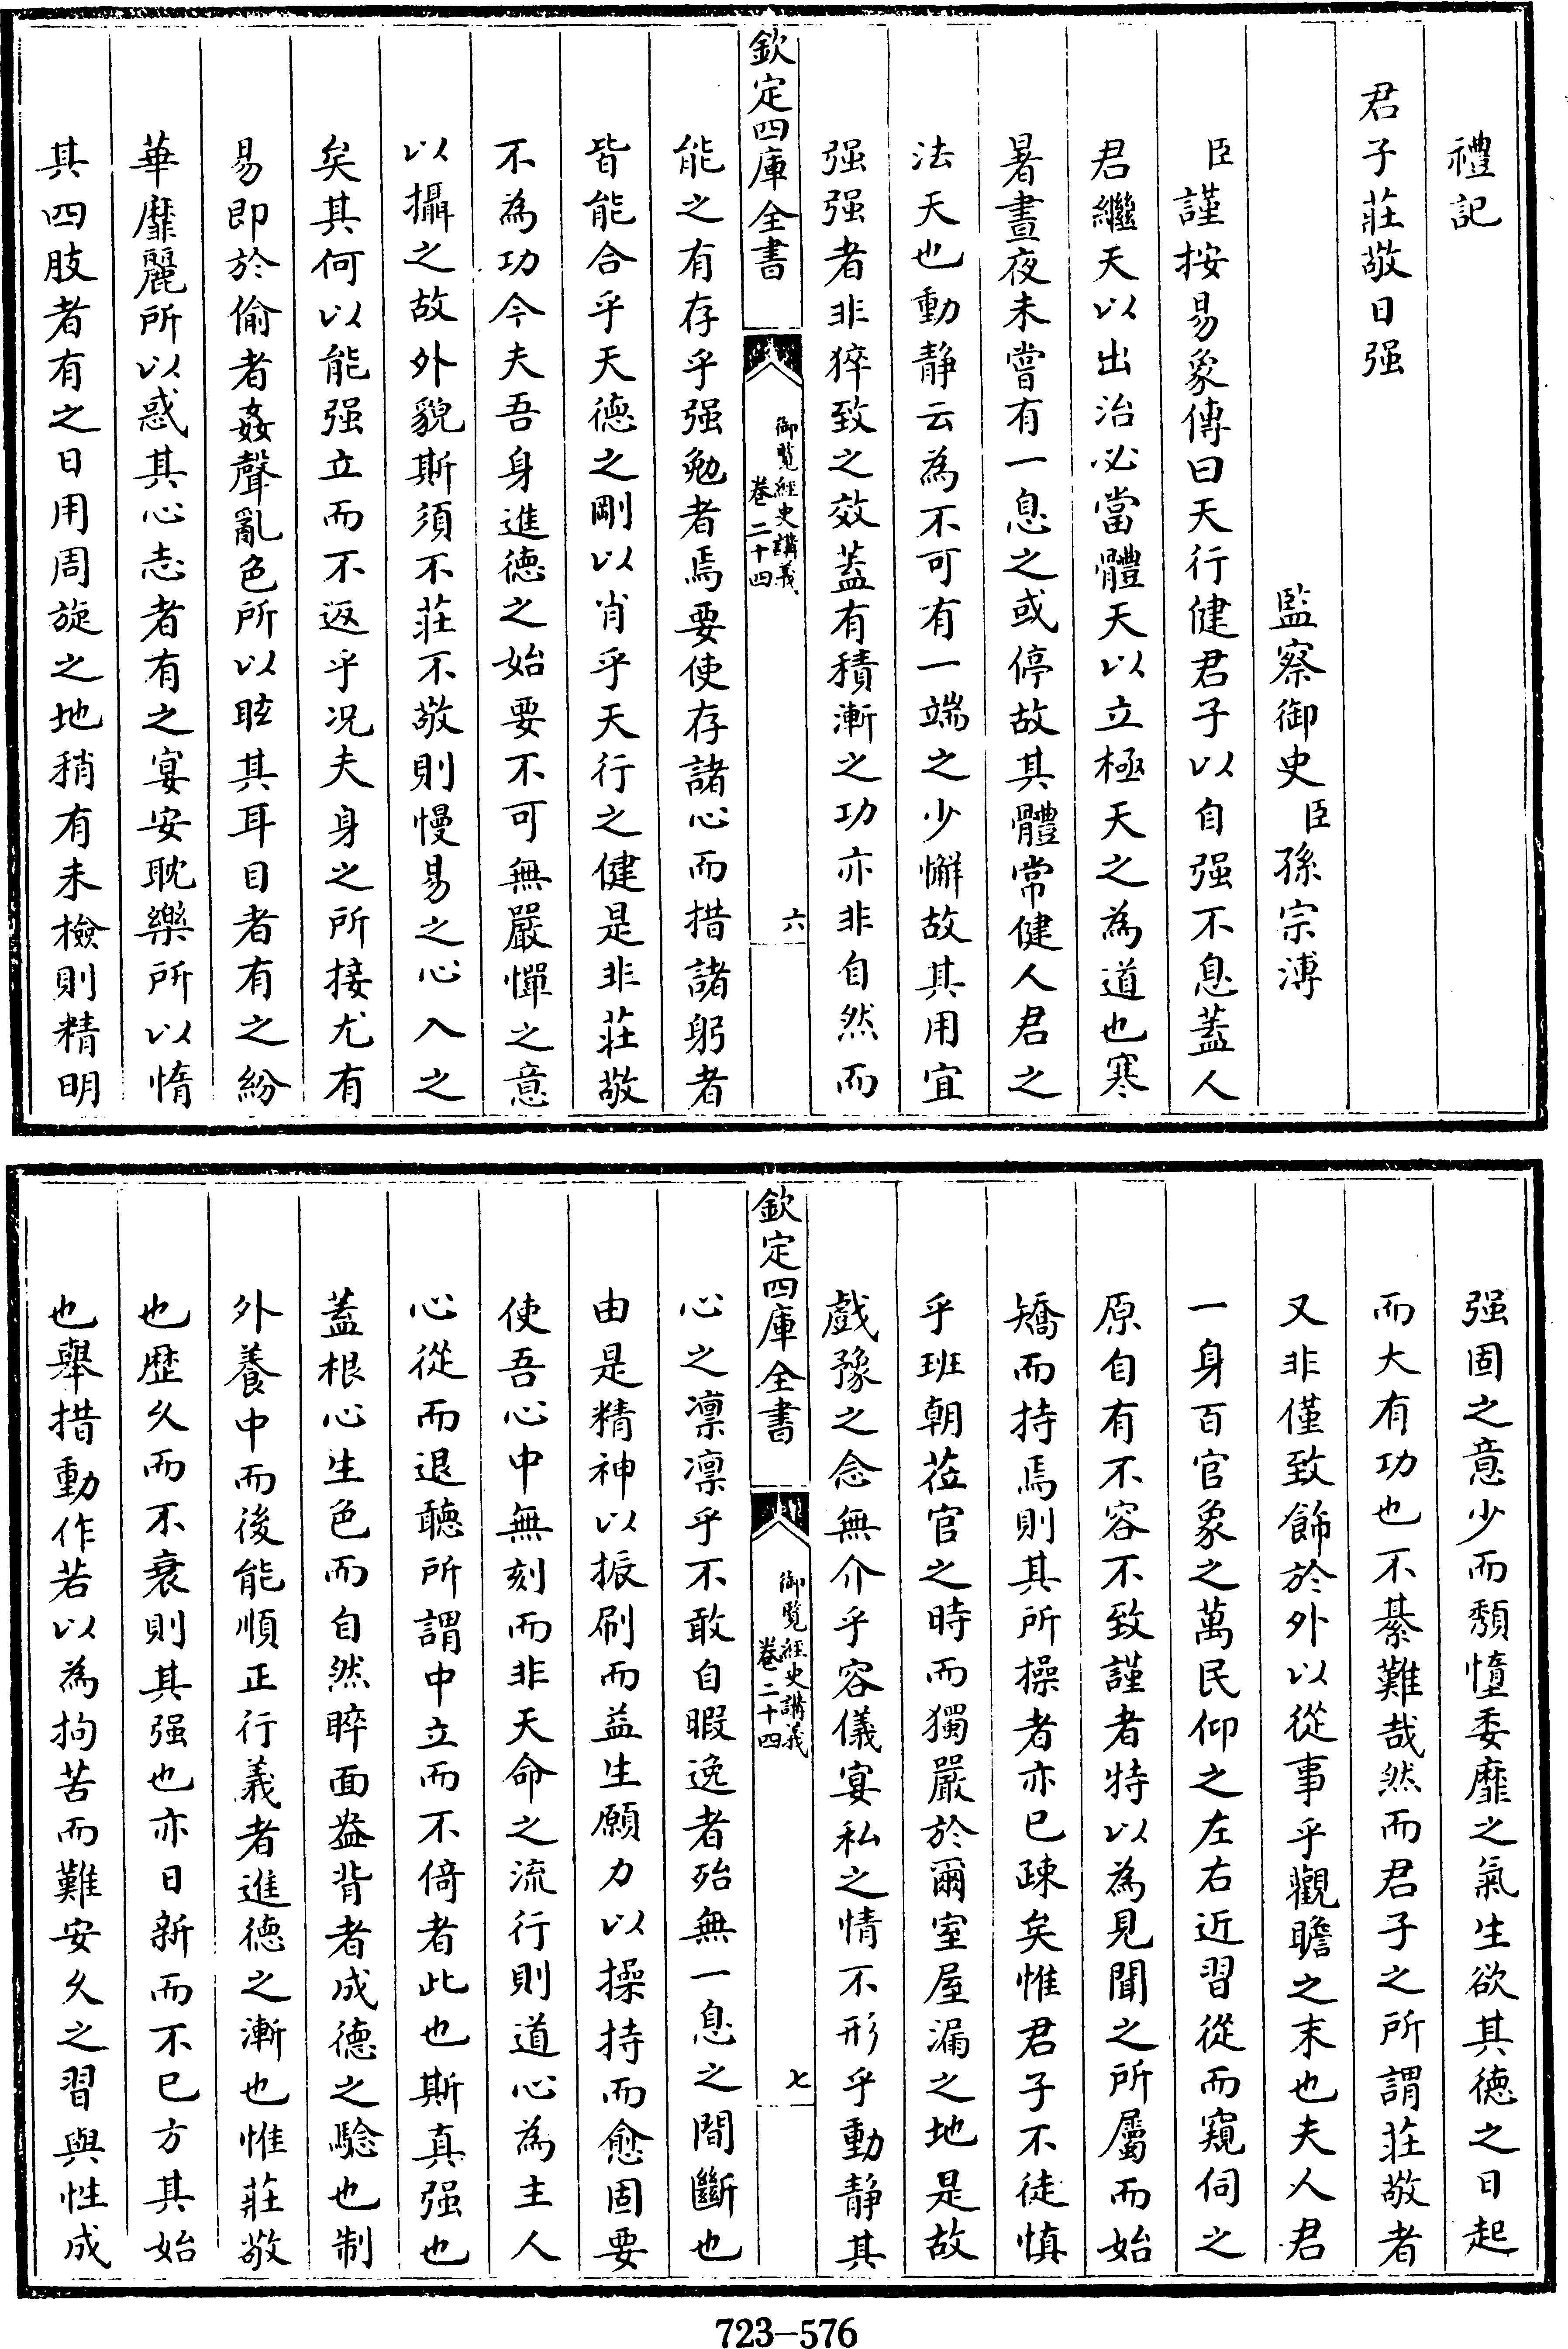 禮記
君子莊敬日强
監察御史臣孫宗溥
臣謹按易象傳曰天行健君子以自强不息蓋人
君繼天以出治必當體天以立極天之為道也寒
暑晝夜未嘗有一息之或停故其體常健人君之
法天也動静云為不可有一端之少懈故其用宜
强强者非猝致之效蓋有積漸之功亦非自然而
欽定四庫全書
御覽經史講義
卷二十四
六
能之有存乎强勉者焉要使存諸心而措諸躬者
皆能合乎天德之剛以肖乎天行之健是非莊敬
不為功今夫吾身進德之始要不可無嚴憚之意
以攝之故外貌斯須不莊不敬則慢易之心入之
矣其何以能强立而不返乎况夫身之所接尤有
易即於偷者姦聲亂色所以眩其耳目者有之紛
華靡麗所以惑其心志者有之宴安耽樂所以惰
其四肢者有之日用周旋之地稍有未檢則精明
强固之意少而頽憧委靡之氣生欲其德之日起
而大有功也不綦難哉然而君子之所謂莊敬者
又非僅致飾於外以從事乎觀瞻之末也夫人君
一身百官象之萬民仰之左右近習從而窺伺之
原自有不容不致謹者特以為見聞之所屬而始
矯而持焉則其所操者亦已疎矣惟君子不徒慎
乎班朝莅官之時而獨嚴於爾室屋漏之地是故
戲豫之念無介乎容儀宴私之情不形乎動静其
欽定四庫全書
御覽經史講義
卷二十四
七
心之凛凛乎不敢自暇逸者殆無一息之間斷也
由是精神以振刷而益生願力以操持而愈固要
使吾心中無刻而非天命之流行則道心為主人
心從而退聽所謂中立而不倚者此也斯真强也
蓋根心生色而自然睟面盎背者成德之騐也制
外養中而後能順正行義者進德之漸也惟莊敬
也歴久而不衰則其强也亦日新而不已方其始
也舉措動作若以為拘苦而難安久之習與性成
723-576